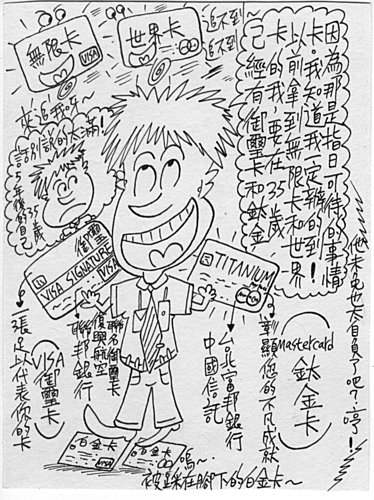 無限卡
VISA
世界卡
追不到～
追不到～
來追我ㄚ～
因為那是指日可待的事情
以前拿到無限卡和世界
卡。我知道我一定辦的到!
己的我要在35歲
經有御璽卡和鈦金
話別說的太滿!
35歲
5年後的自己
也未免也太自負了吧?哼!
御璽
VISA SIGNATURE
VISA
TITANIUM
張足以代表你的卡
VISA
御璽卡
聯邦銀行
復興航空
聯名御璽卡
台北富邦銀行
中國信託
彰顯您的不凡成就
Mastercard
鈦金卡
白金卡
白金卡
嗚～
被踩在腳下的白金卡～